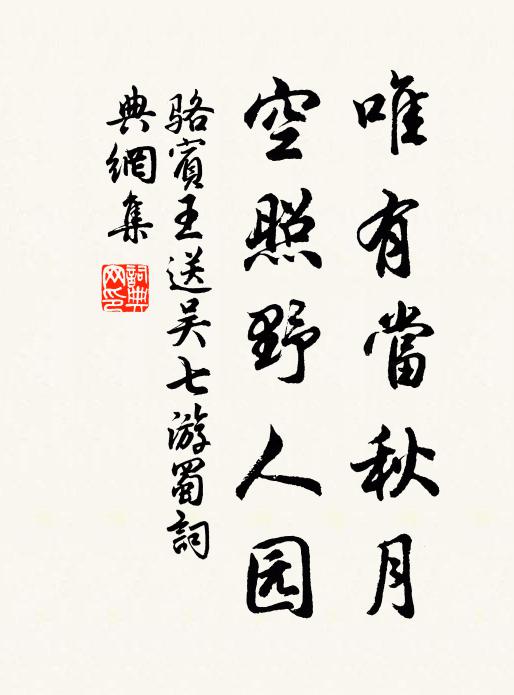 唯有當秋月
空照野人园
骆賓王送吴七游蜀詞
典網集
詞典
网印